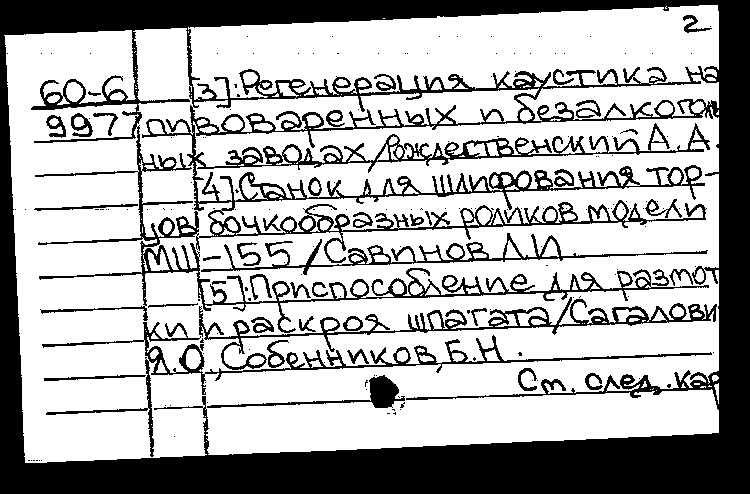 2
60-6 [3]:Регенерация каустика на
9977 пивоваренных и безалкоголь
ных заводах/Рождественский А.А.
[4]:Станок для шлифования тор-
цов бочкообразных роликов модели
МШ-155/Савинов Л.И.
[5]:Приспособление для размот
ки и раскроя шпагата/Сагалови
Я.О., Собенников, Б.Н.
См. след. кар